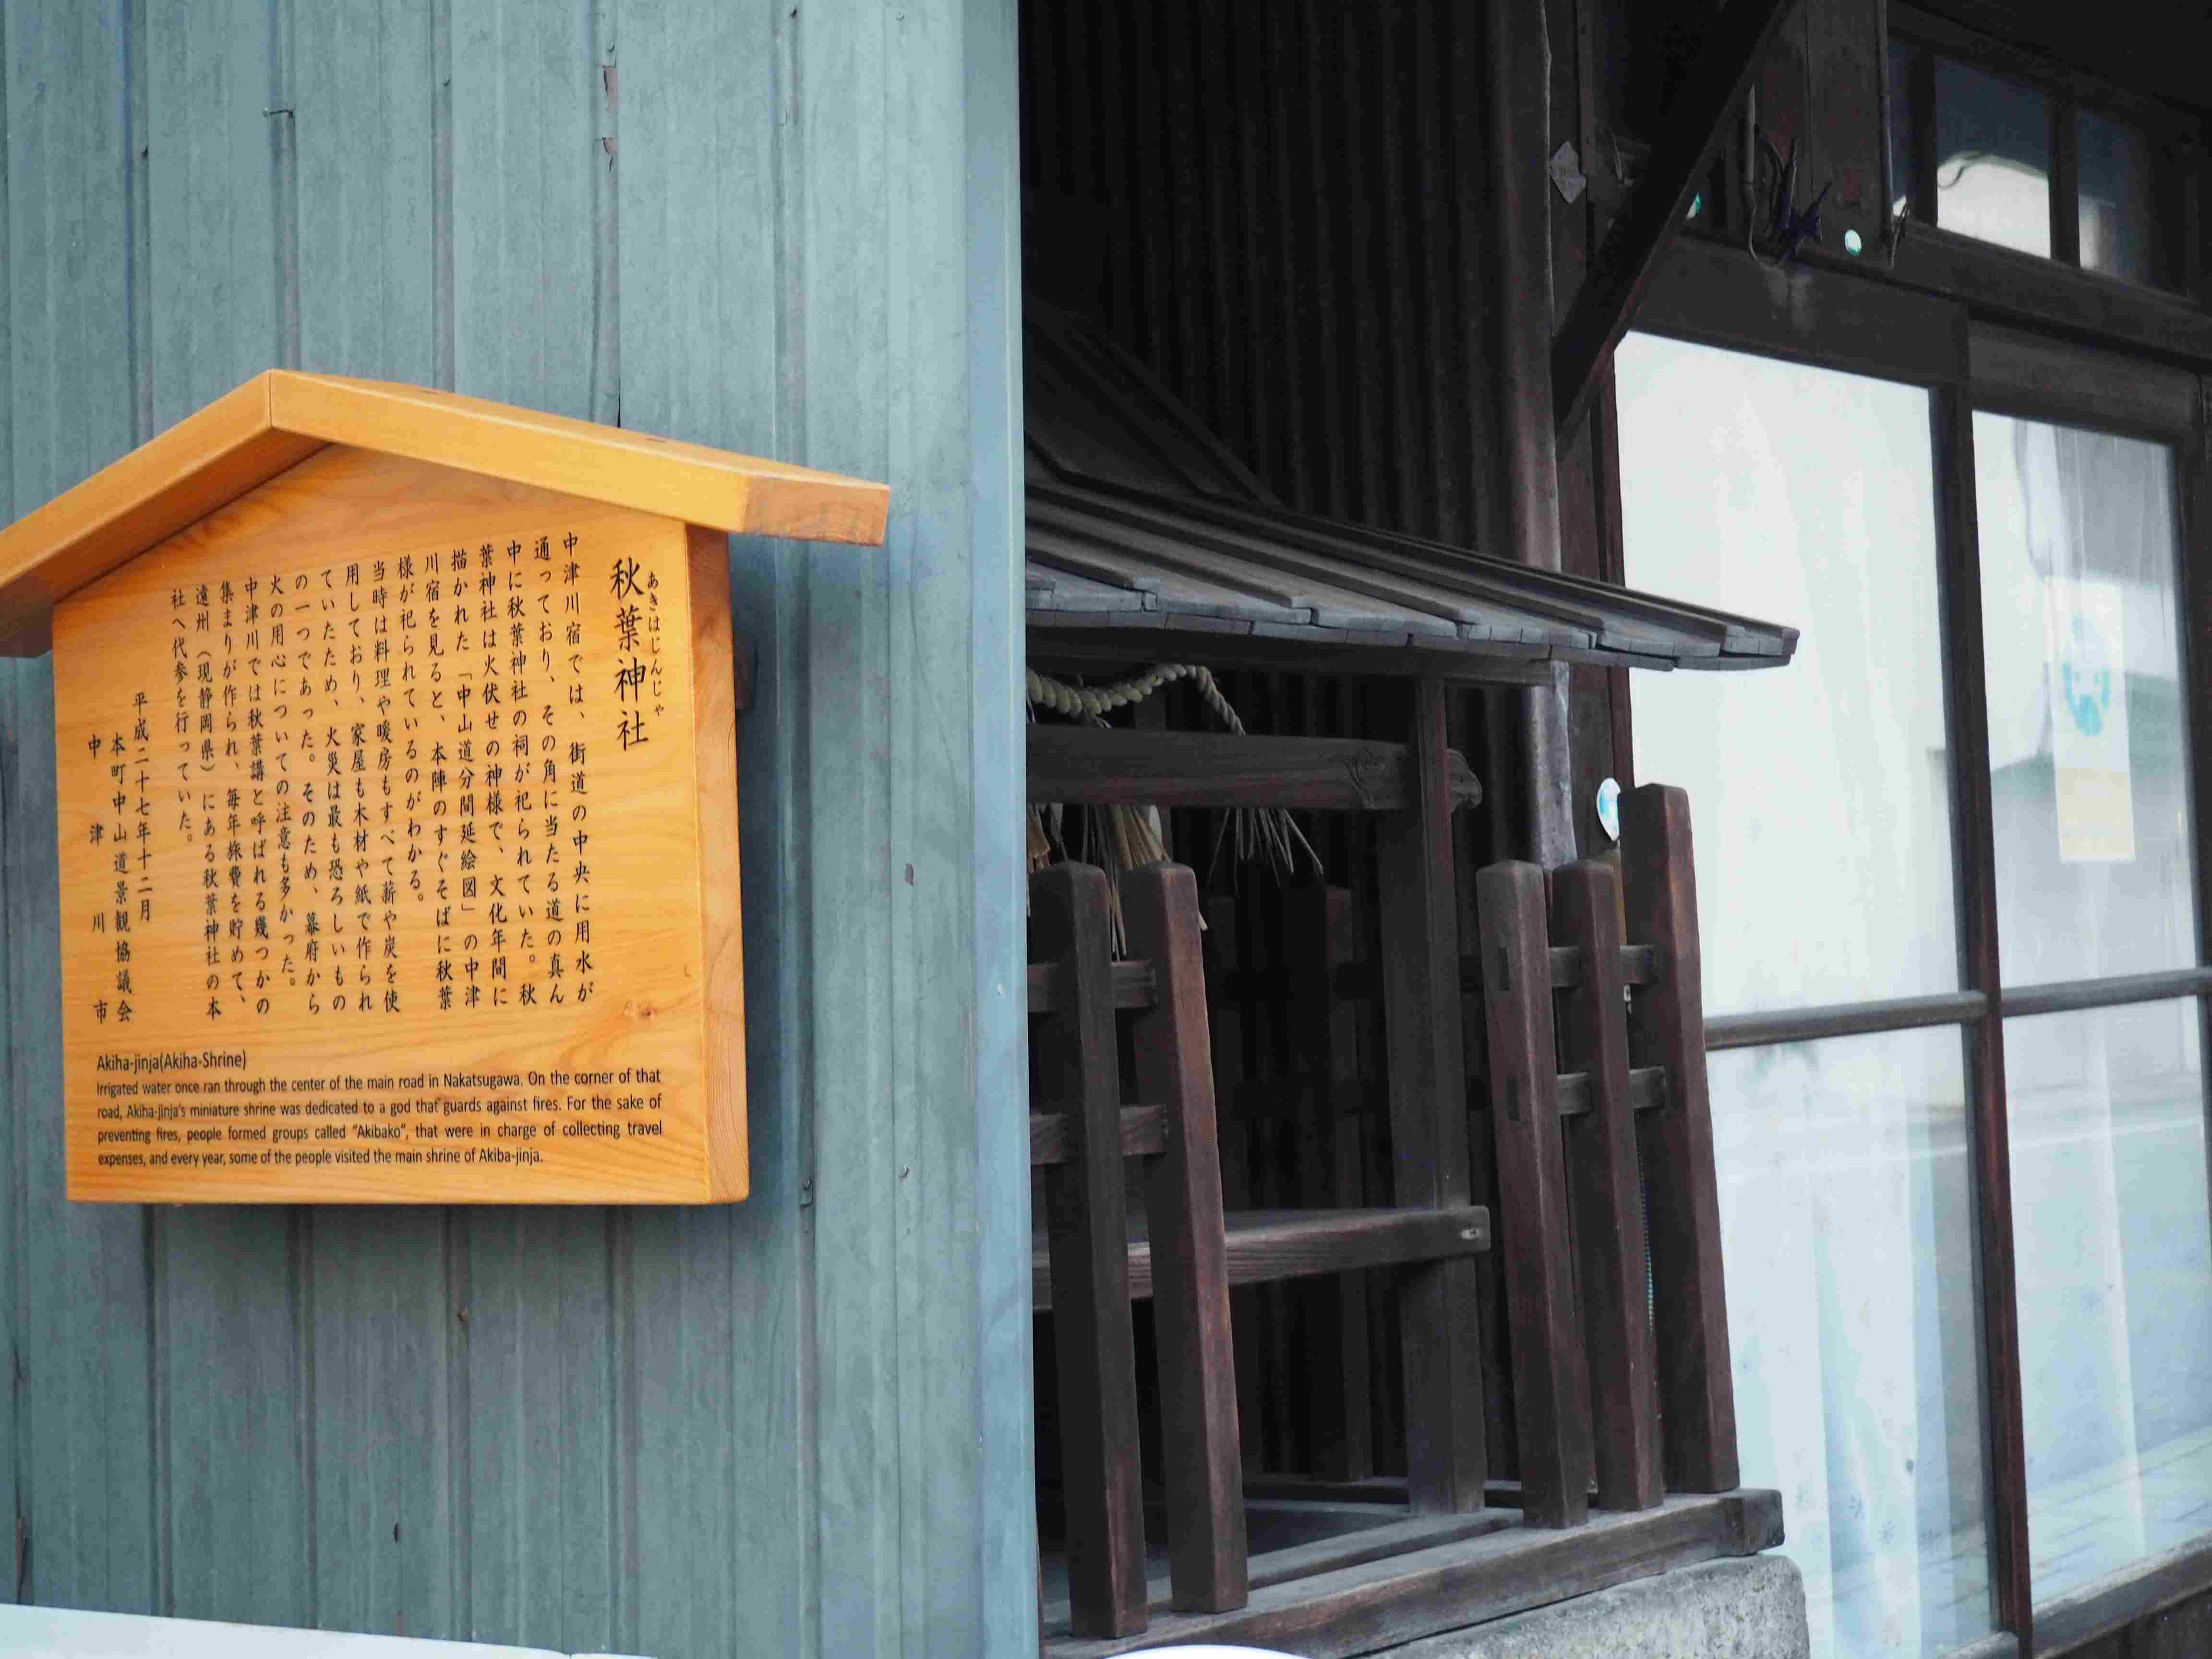 秋葉神社
あきはじんじゃ
中津川宿では、街道の中央に用水が
通っており、その角に当たる道の真ん
中に秋葉神社の祠が祀られていた。秋
葉神社は火伏せの神様で、文化年間に
描かれた「中山道分間延絵図」の中津
川宿を見ると、本陣のすぐそばに秋葉
様が祀られているのがわかる。
当時は料理や暖房もすべて薪や炭を使
用しており、家屋も木材や紙で作られ
ていたため、火災は最も恐ろしいもの
の一つであった。そのため、幕府から
火の用心についての注意も多かった。
中津川では秋葉講と呼ばれる幾つかの
集まりが作られ、毎年旅費を貯めて、
遠州（現静岡県）にある秋葉神社の本
社へ代参を行っていた。
平成二十七年十二月
本町中山道景観協議会
中津川市
Akiha-jinja(Akiha-Shrine)
Irrigated water once ran through the center of the main road in Nakatsugawa. On the corner of that
road, Akiha-jinja's miniature shrine was dedicated to a god that guards against fires. For the sake of
preventing fires, people formed groups called "Akibako", that were in charge of collecting travel
expenses, and every year, some of the people visited the main shrine of Akiba-jinja.